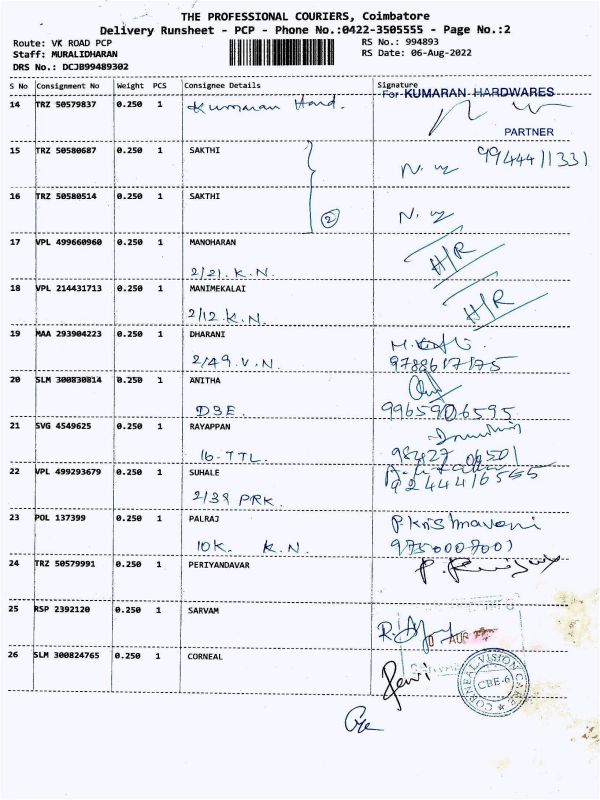 THE PROFESSIONAL COURIERS, Coimbatore
Delivery Runsheet - PCP - Phone No.:0422-3505555 - Page No.:2
Route: VK ROAD PCP RS No.: 994893
Staff: MURALIDHARAN RS Date: 06-Aug-2022
DRS No.: DCJB99489302
S No Consignment No Weight PCS Consignee Details Signature
For KUMARAN HARDWARES
14 TRZ 50579837 0.250 1 Kumaran Hard.
PARTNER
15 TRZ 50580687 0.250 1 SAKTHI 9944411331
16 TRZ 50580514 0.250 1 SAKTHI
2
17 VPL 499660960 0.250 1 MANOHARAN H/R
2/21. K.N.
18 VPL 214431713 0.250 1 MANIMEKALAI H/R
2/12. K.N.
19 MAA 293904223 0.250 1 DHARANI
2/49. V.N. 9788617175
20 SLM 300830814 0.250 1 ANITHA
D3E. 9965906595
21 SVG 4549625 0.250 1 RAYAPPAN
16. TTL.
22 VPL 499293679 0.250 1 SUHALE
2/39 PRK. 9244416565
23 POL 137399 0.250 1 PALRAJ P. Krishnavani
10K. K.N. 9750007001
24 TRZ 50579991 0.250 1 PERIYANDAVAR
25 RSP 2392120 0.250 1 SARVAM
AUG
26 SLM 300824765 0.250 1 CORNEAL
CORNEAL VISION CARE
CBE-6